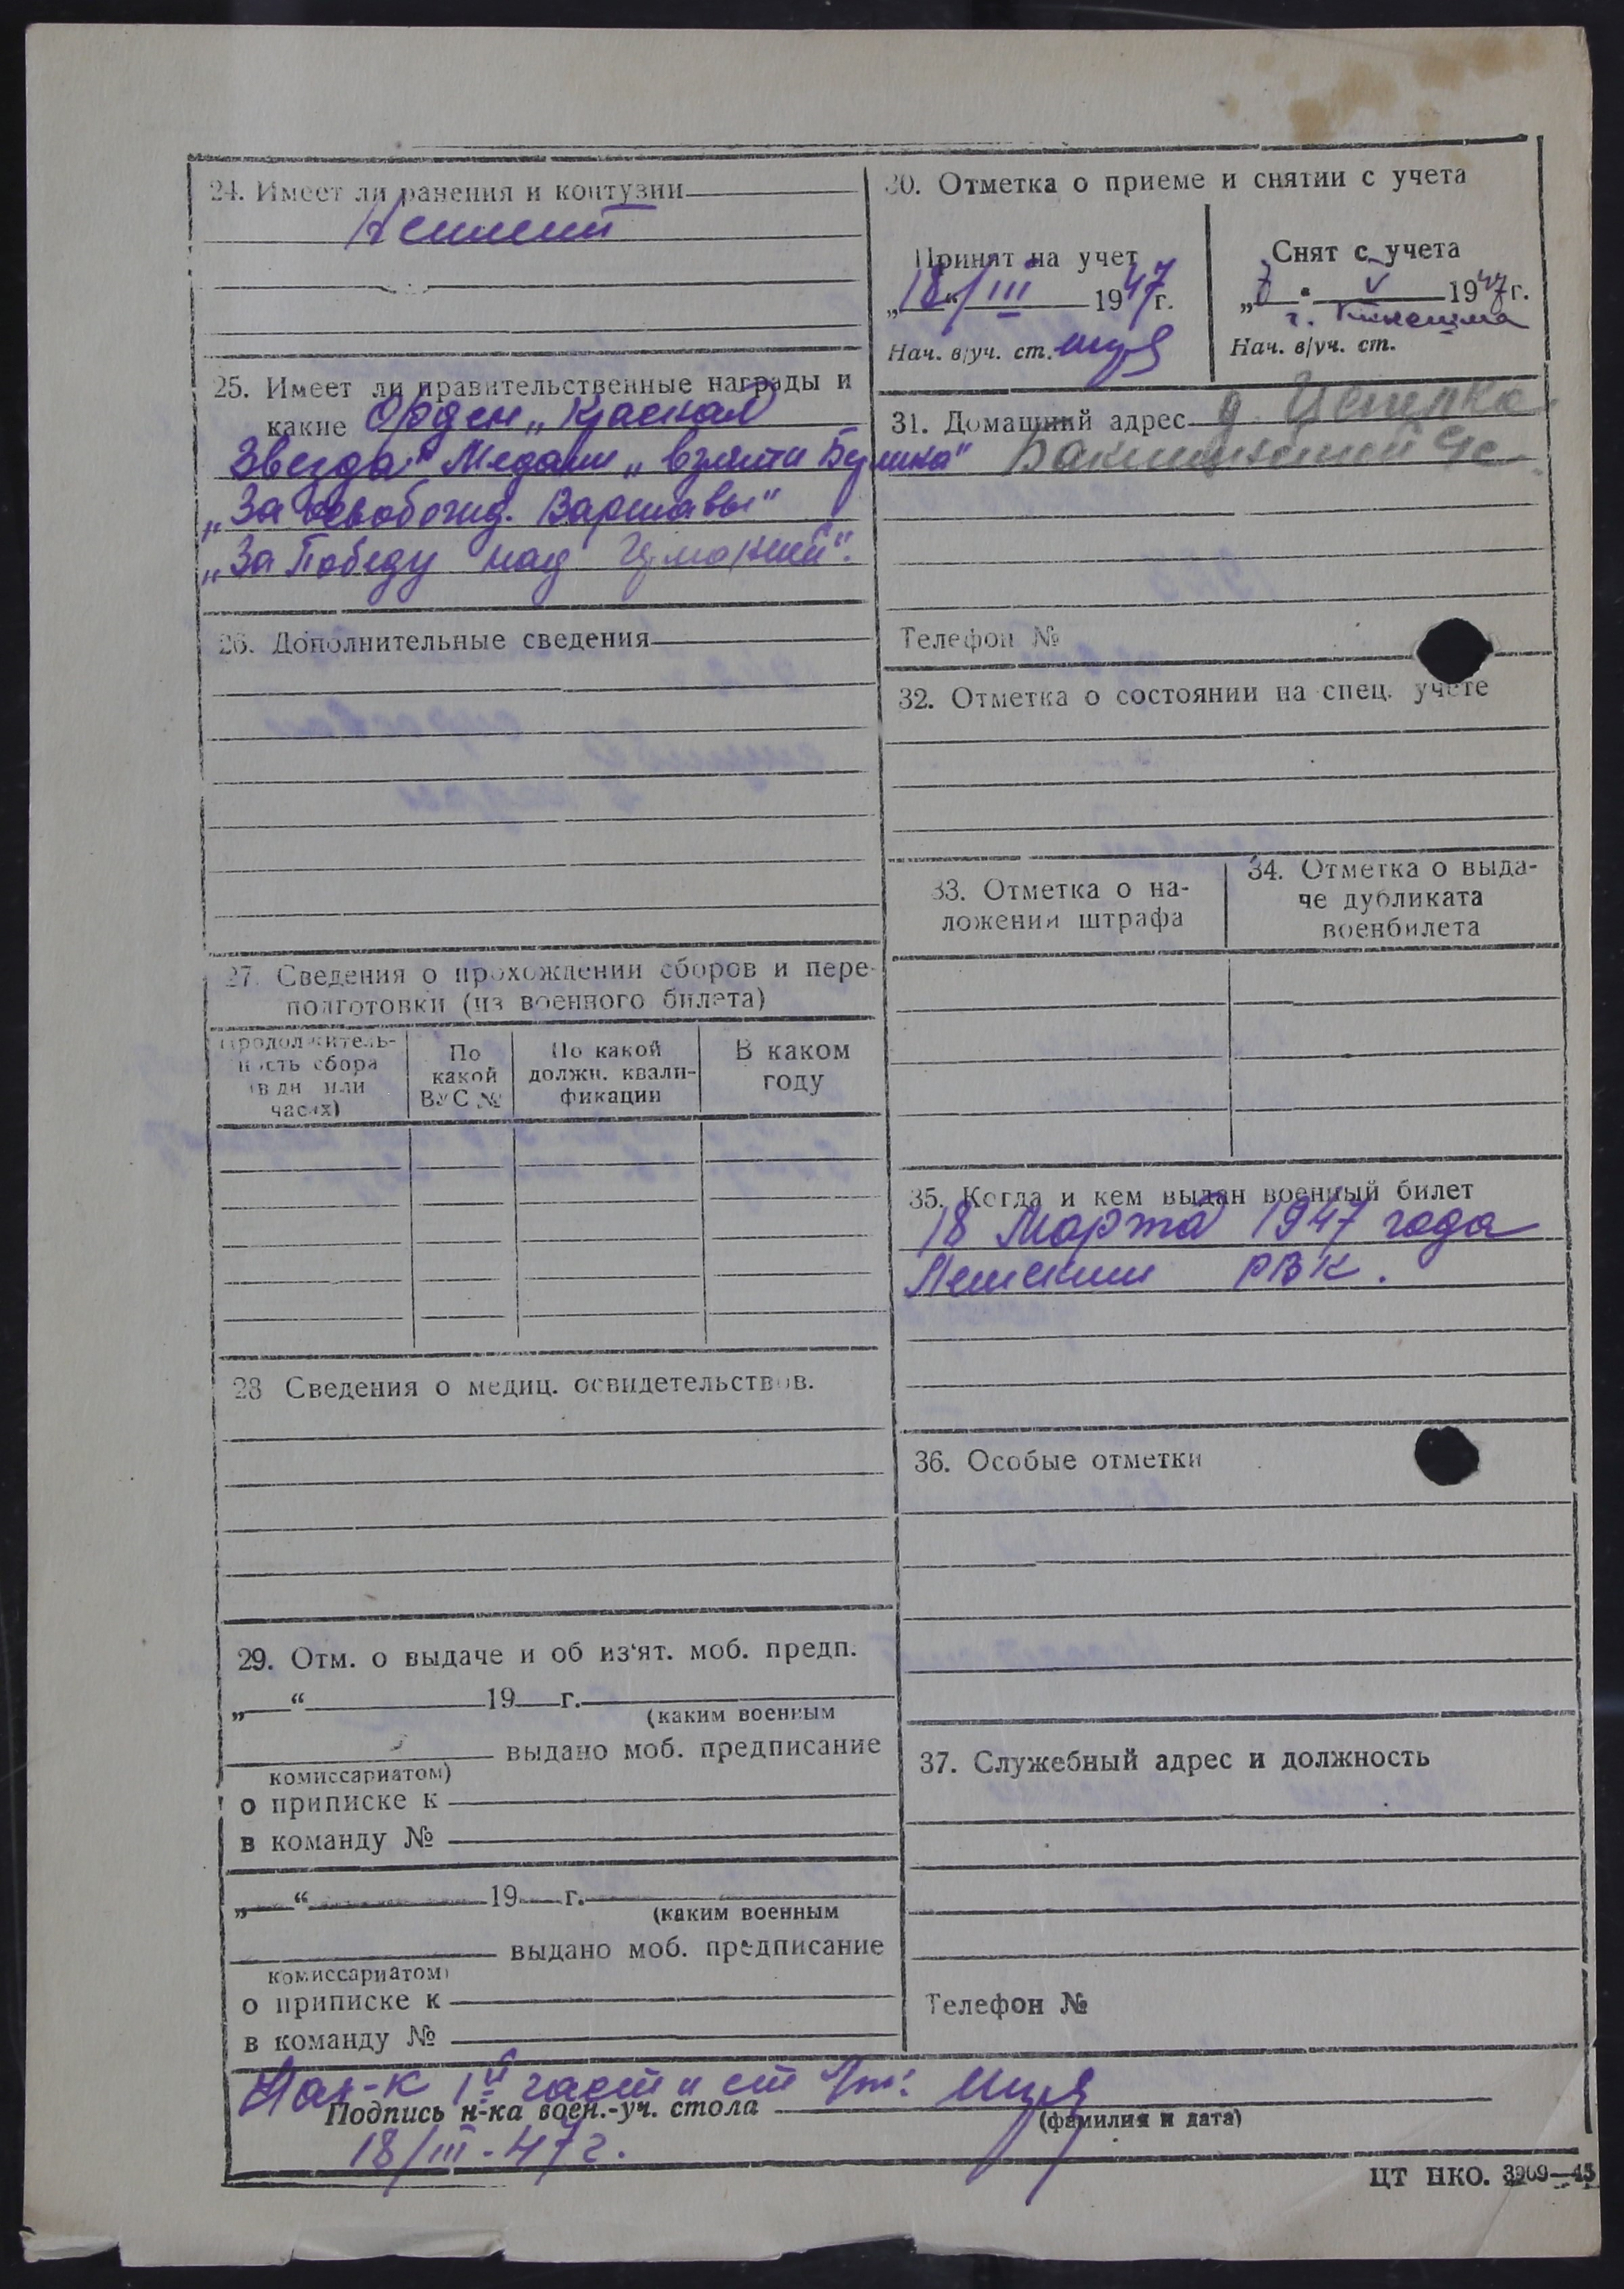 24. Имеет ли ранения и контузии
Неимеит
25. Имеет ли правительственные награды и
какие Орден „Красная
Звезда" Медали „взяти Берлина"
„За освобожд. Варшавы"
„За Победу над Германией".
26. Дополнительные сведения
27. Сведения о прохождении сборов и пере-
подготовки (из военного билета)
Продолжитель-
ность сбора
(в дн. или
часах)
По
какой
ВУС №
По какой
должн. квали-
фикации
В каком
году
28 Сведения о медиц. освидетельствов.
29. Отм. о выдаче и об из'ят. моб. предп.
„ “ 19 г.
(каким военным
выдано моб. предписание
комиссариатом)
о приписке к
в команду №
„ “ 19 г.
(каким военным
выдано моб. предписание
комиссариатом)
о приписке к
в команду №
30. Отметка о приеме и снятии с учета
Принят на учет
„18“ III 1947г.
Нач. в/уч. ст.
Снят с учета
„7 “ V 1947г.
г. Кинешма
Нач. в/уч. ст.
31. Домашний адрес д.
Телефон №
32. Отметка о состоянии на спец. учете
33. Отметка о на-
ложении штрафа
34. Отметка о выда-
че дубликата
военбилета
35. Когда и кем выдан военный билет
18 Марта 1947 года
РВК.
36. Особые отметки
37. Служебный адрес и должность
Телефон №
Нач-к 1й части ст
Подпись н-ка воен.-уч. стола
(фамилия и дата)
18/III-47г.
ЦТ НКО. 3909—45